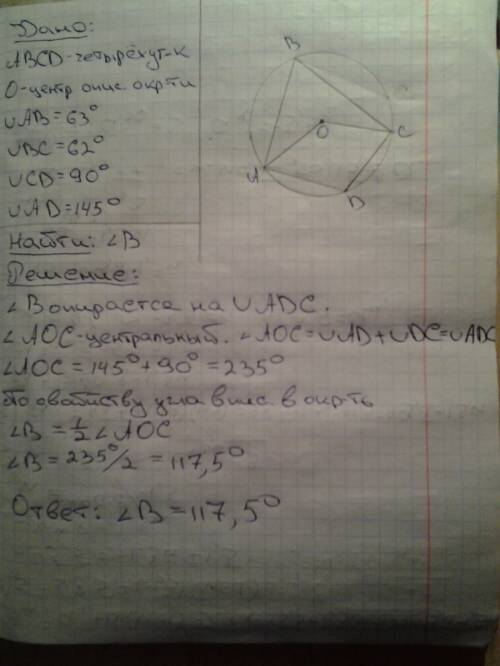 Дано:
ABCD-четырёхуг-к
O-центр опис. окр-ти
∪AB=63°
∪BC=62°
∪CD=90°
∪AD=145°
Найти: ∠B
Решение:
∠B опирается на ∪ADC.
∠AOC-центральный. ∠AOC=∪AD+∪DC=∪ADC
∠AOC=145°+90°=235°
По свойству угла впис. в окр-ть
∠B=½∠AOC
∠B=235°/2=117,5°
Ответ: ∠B=117,5°
B
O
C
A
D